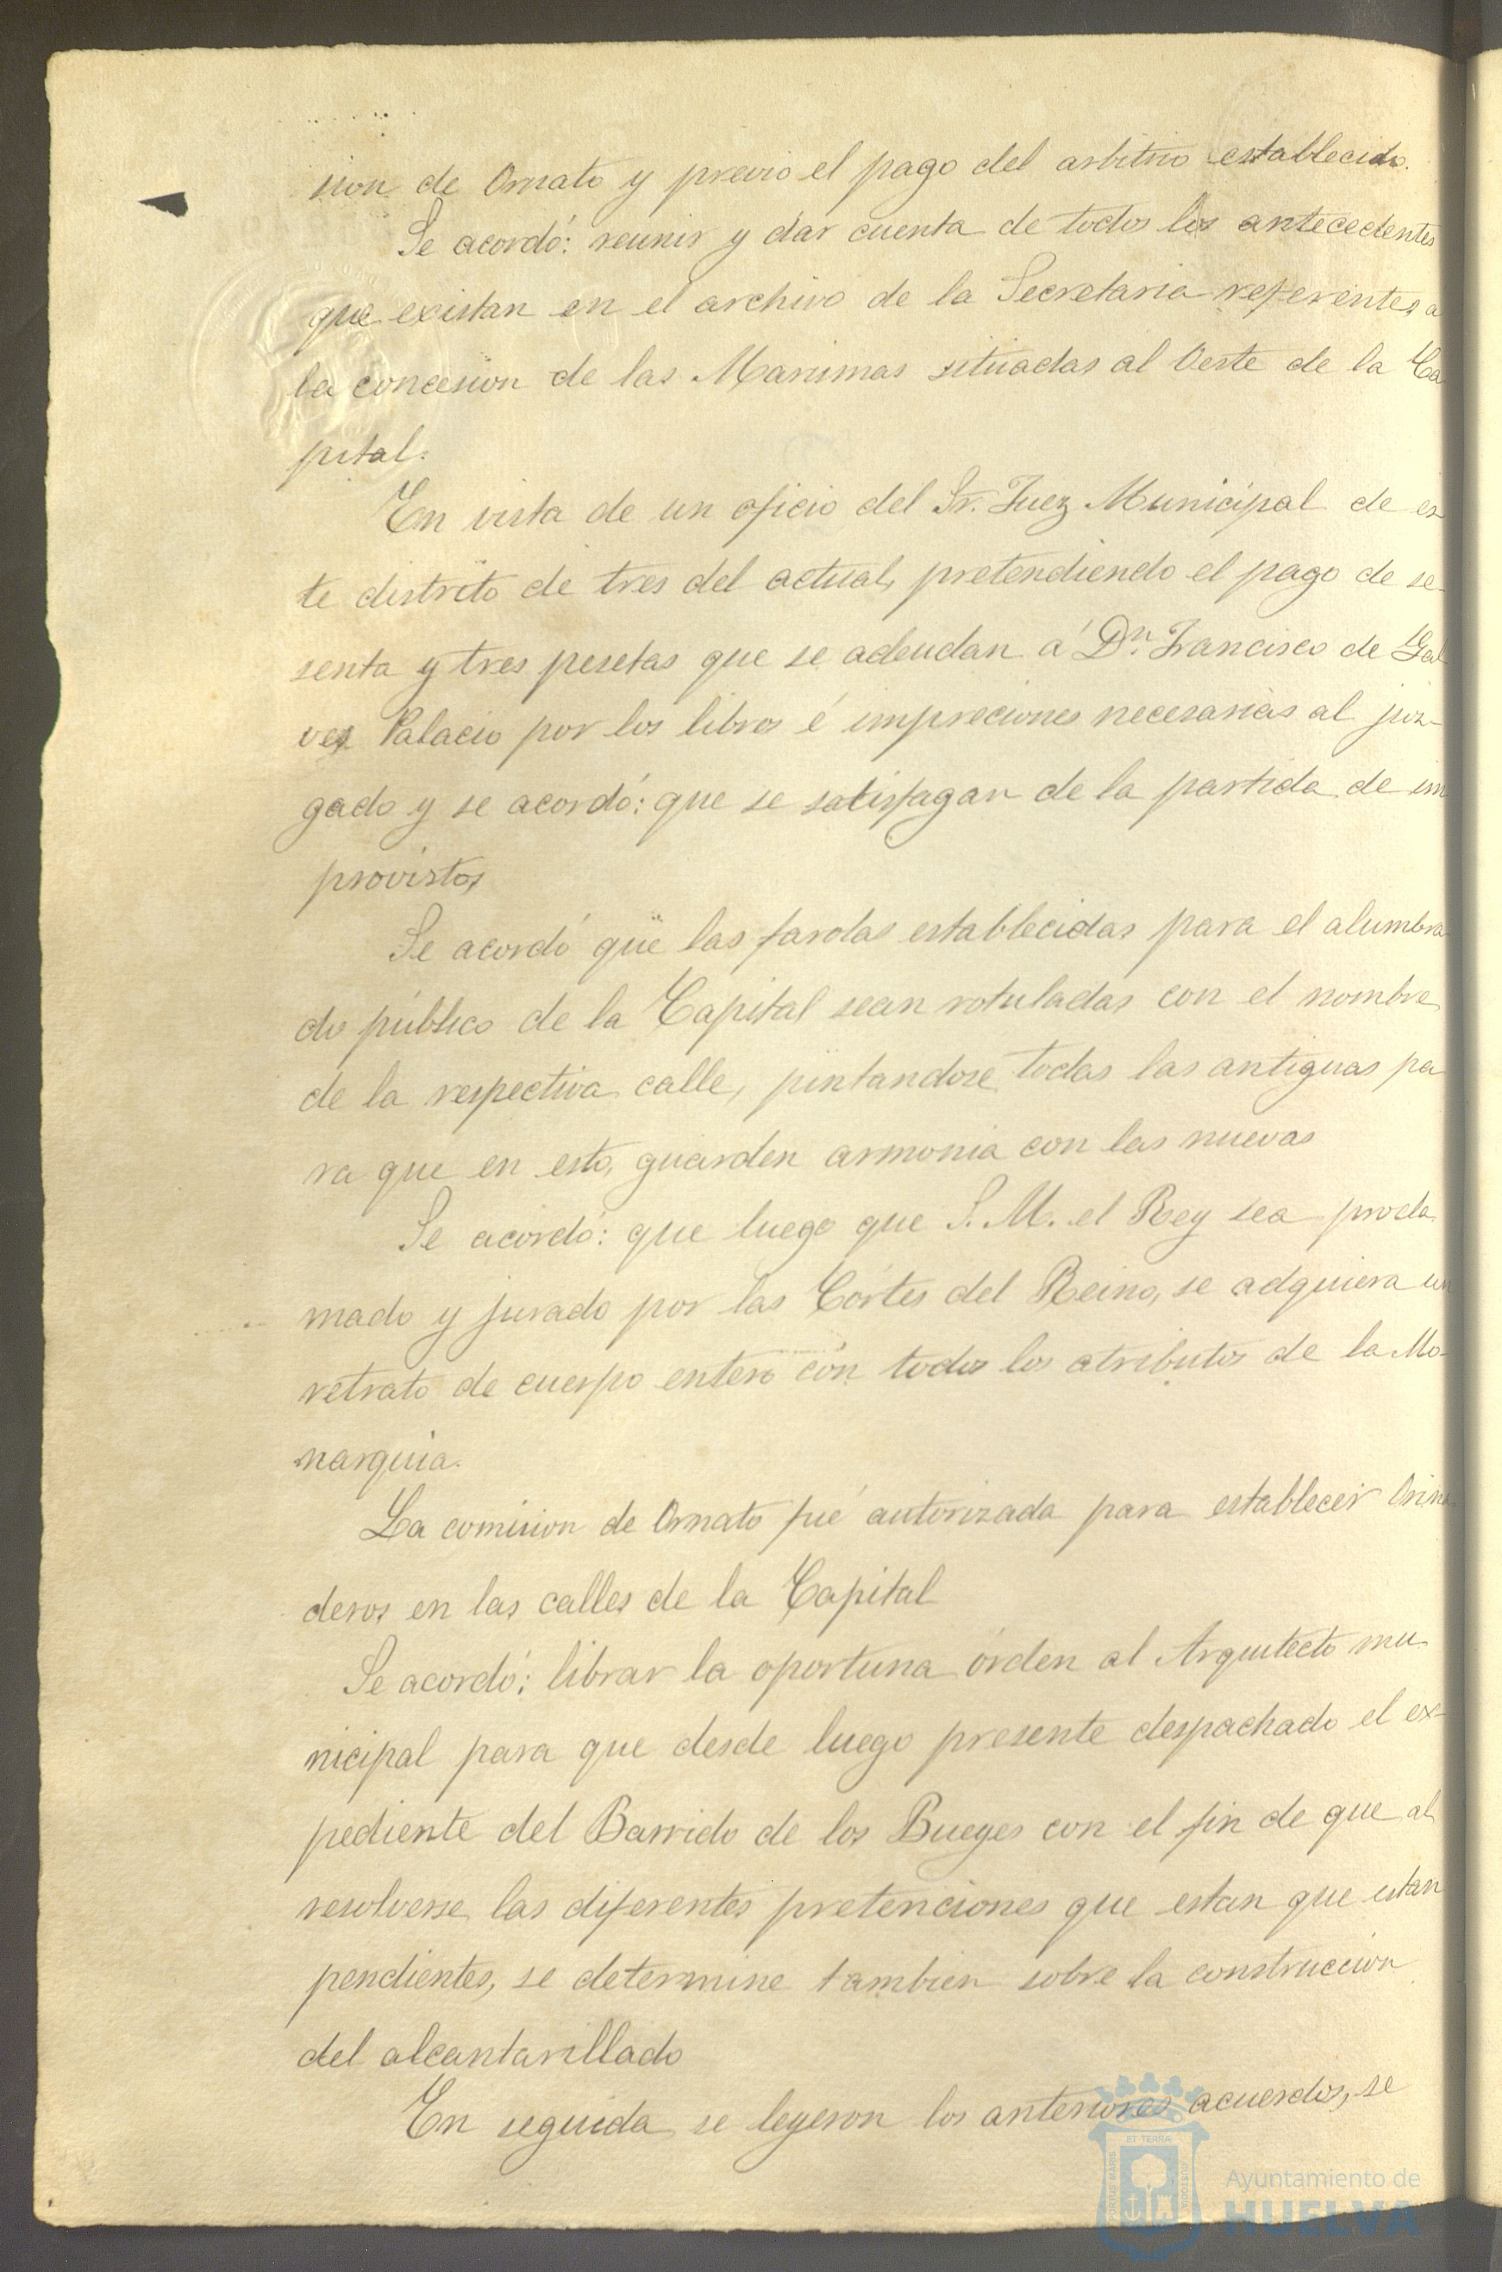 sion de Ornato y previo el pago del arbitrio establecido.
Se acordó: reunir y dar cuenta de todos los antecedentes
que existan en el archivo de la Secretaria referentes a
la concesion de las Marismas situadas al Oeste de la Ca
pital.
En vista de un oficio del Sr. Juez Municipal de es
te distrito de tres del actual, pretendiendo el pago de se-
senta y tres pesetas que se adeudan á Dn. Francisco de Gal
vez Palacio por los libros é impreciones necesarias al juz-
gado y se acordó: que se satisfagan de la partida de im
provistos
Se acordó que las farolas establecidas para el alumbra
do público de la Capital sean rotuladas con el nombre
de la respectiva calle, pintandose todas las antiguas pa
ra que en esto, guarden armonia con las nuevas
Se acordó: que luego que S. M. el Rey sea procla
mado y jurado por las Córtes del Reino, se adquiera un
retrato de cuerpo entero con todos los atributos de la Mo-
narquia.
La comision de Ornato fué autorizada para establecer Orina
deros en las calles de la Capital
Se acordó: librar la oportuna órden al Arquitecto mu-
nicipal para que desde luego presente despachado el ex-
pediente del Barrido de los Bueyes con el fin de que al
resolverse las diferentes pretenciones que estan que estan
pendientes, se determine tambien sobre la construccion
del alcantarillado
En seguida se leyeron los anteriores acuerdos, se
PORTUS MARIS ET TERRAE CUSTODIA
Ayuntamiento de
HUELVA